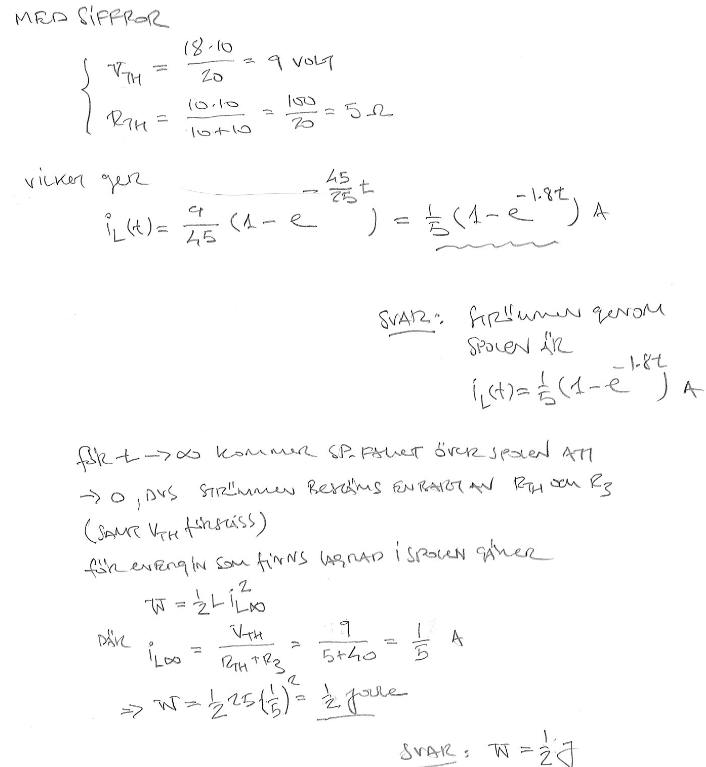 MED SIFFROR
V_TH = 18·10 / 20 = 9 VOLT
R_TH = 10·10 / 10+10 = 100 / 20 = 5 Ω
VILKET GER
i_L(t) = 9/45 (1 - e^{-45/25 t}) = 1/5 (1 - e^{-1.8t}) A
SVAR: STRÖMMEN GENOM
SPOLEN ÄR
i_L(t) = 1/5 (1 - e^{-1.8t}) A
FÖR t → ∞ KOMMER SP.FALLET ÖVER SPOLEN ATT
→ 0, DVS STRÖMMEN BESTÄMS ENBART AV R_TH OCH R_3
(SAMT V_TH FÖRSTÅSS)
FÖR ENERGIN SOM FINNS LAGRAD I SPOLEN GÄLLER
W = 1/2 L i_{L∞}^2
DÄR i_{L∞} = V_TH / R_TH + R_3 = 9 / 5+40 = 1/5 A
⇒ W = 1/2 25 (1/5)^2 = 1/2 joule
SVAR: W = 1/2 J